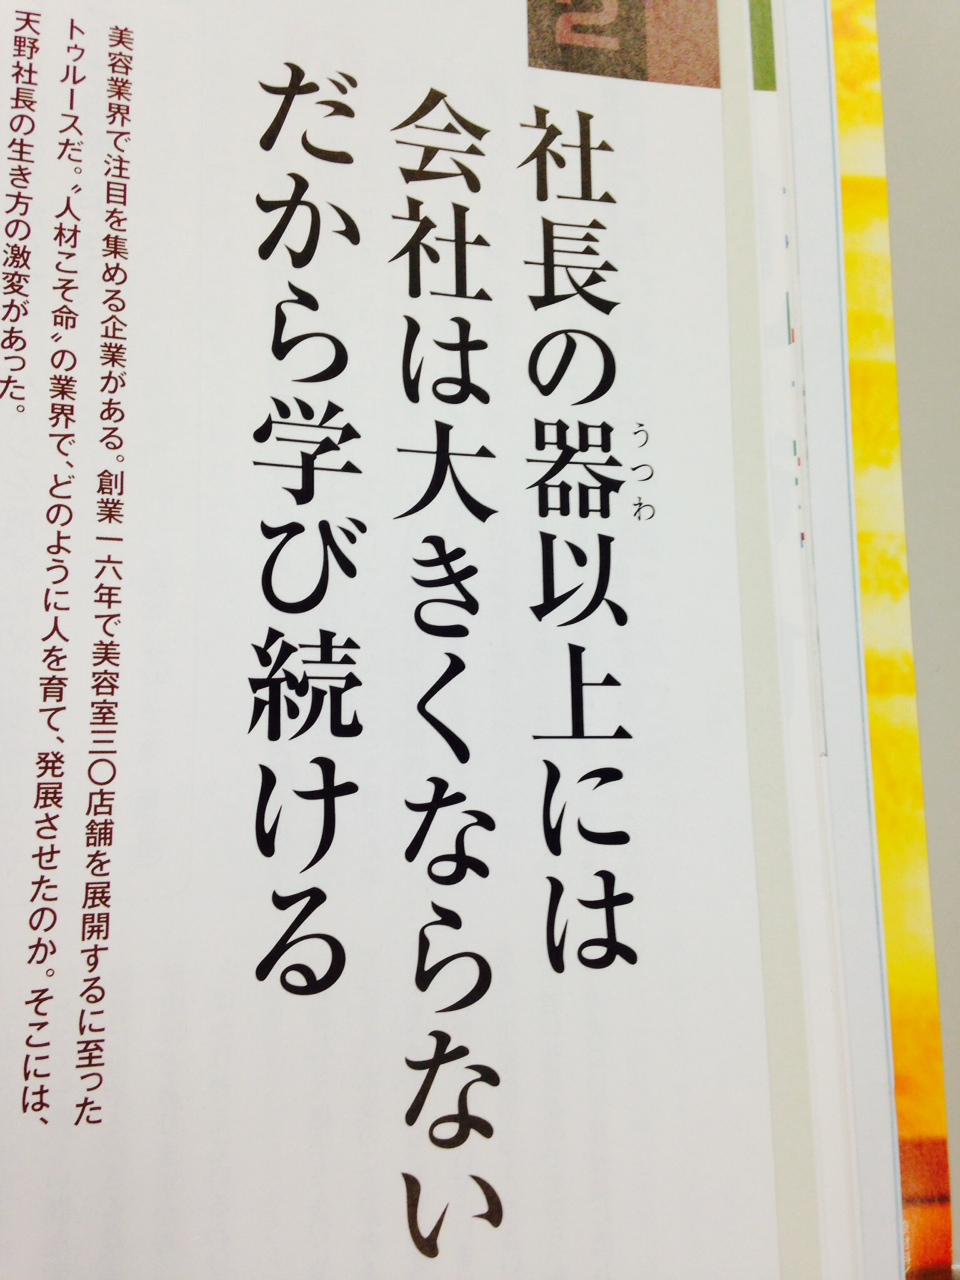 2
社長の器以上には
うつわ
会社は大きくならない
だから学び続ける
美容業界で注目を集める企業がある。創業一六年で美容室三〇店舗を展開するに至った
トゥルースだ。〝人材こそ命〟の業界で、どのように人を育て、発展させたのか。そこには、
天野社長の生き方の激変があった。